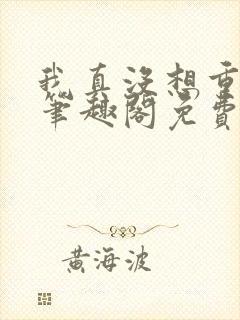 我真没想重
笔趣阁免费
黄海波